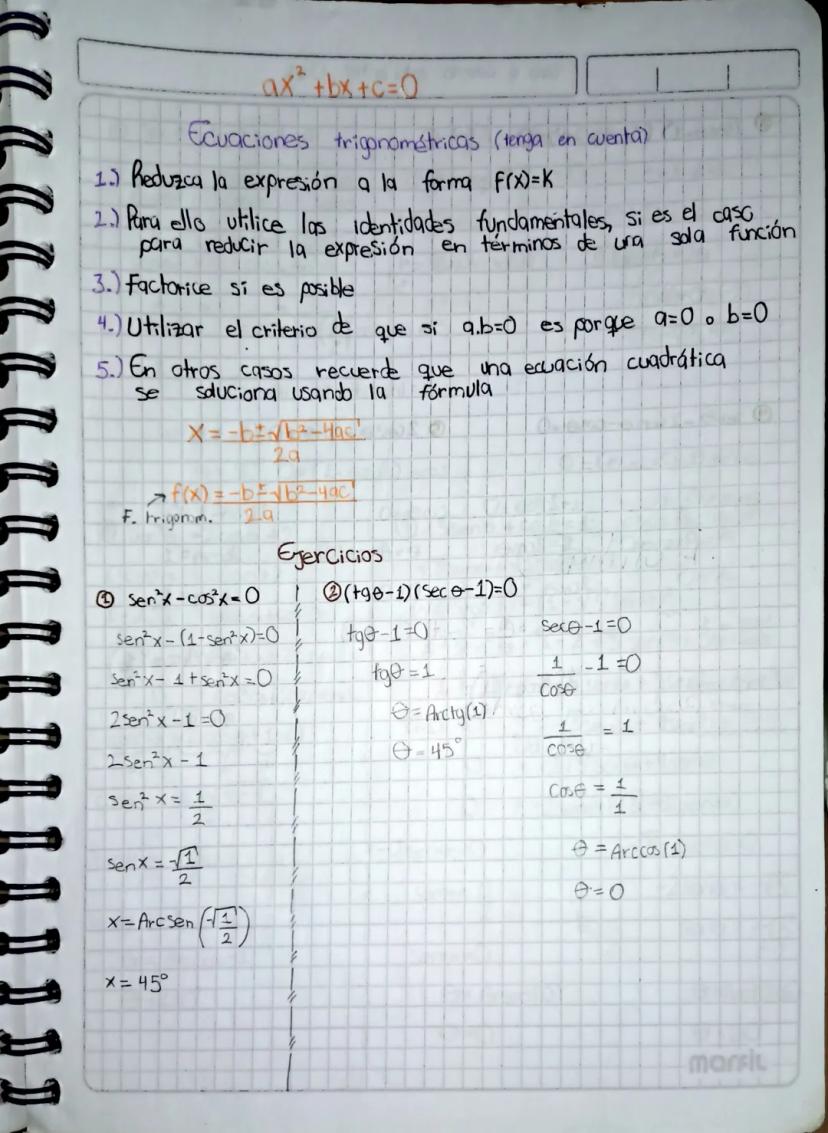 ax²+bx+c=0
Ecuaciones trigonométricas (tenga en cuenta)
1.) Reduzca la expresión a la forma f(x)=K
2.) Para ello utilice las identidades fundamentales, si es el caso
para reducir la expresión en términos de una sola función
3.) Factorice si es posible
4.) Utilizar el criterio de que si a.b=0 es porque a=0 o b=0
5.) En otros casos recuerde que una ecuación cuadrática
se soluciona usando la fórmula
x = -b±√b²-4ac / 2a
→ f(x) = -b±√b²-4ac / 2a
F. trigonom.
Ejercicios
① sen²x-cos²x=0
sen²x-(1-sen²x)=0
sen²x-1+sen²x=0
2sen²x-1=0
2sen²x-1
sen²x = 1/2
senx = √1/2
x=Arcsen(√1/2)
x=45°
② (tgθ-1)(secθ-1)=0
tgθ-1=0
tgθ=1
θ=Arctg(1)
θ=45°
secθ-1=0
1/cosθ -1=0
1/cosθ = 1
Cosθ = 1/1
θ=Arccos(1)
θ=0
marfil